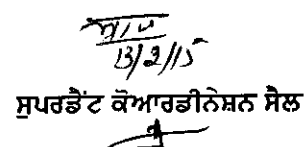 13/2/15
ਸੁਪਰਡੈਂਟ ਕੋਆਰਡੀਨੇਸ਼ਨ ਸੈਲ